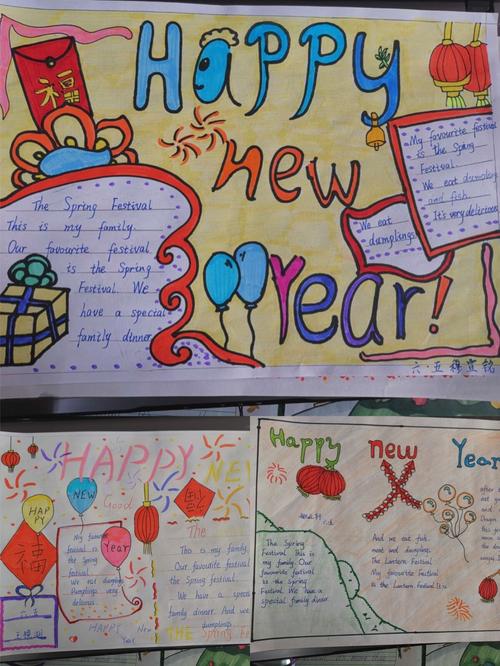 Happy
new
Year!
福
The Spring Festival
This is my family.
Our favourite festival
is the Spring
Festival. We
have a special
family dinner.
We eat
dumplings.
My favourite festival
is the Spring
Festival.
We eat dumplings
and fish.
It's very delicious
六·五
HAPPY NEW
Good
HAP
PY
NEW
Year
福
My favourite
festival is
the Spring
festival
We eat dumplings
Dumplings very
delicious
The
This is my family.
Our favourite festival
the Spring festival.
We have a special
family dinner. And we
dumplings.
HAPPY New
Year
THE Spring Fe
Happy new Year
The Spring
Festival This is
my family. Our
favourite festival
is the Spring
Festival. We have a
special family dinner.
And we eat fish,
meat and dumpling.
The Lantern Festival
My favourite Festival
is the Lantern Festival.
after